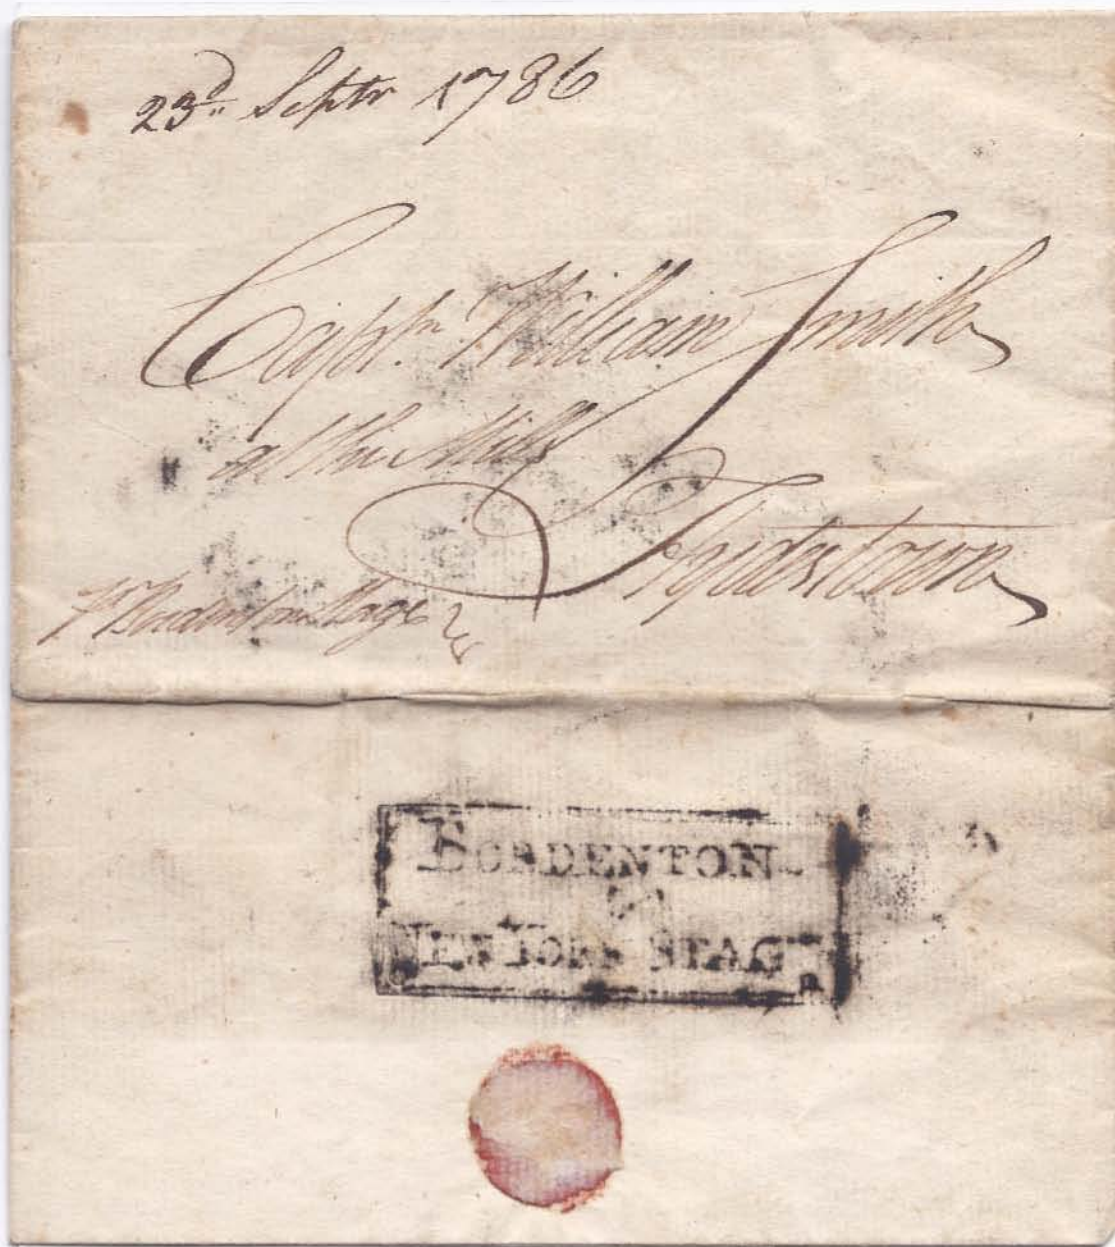 23d. Septr 1786
Captn. William Smith
at the Mills
Hydestown
pr. Bordenton Stage
BORDENTON
&
NEW YORK STAGE